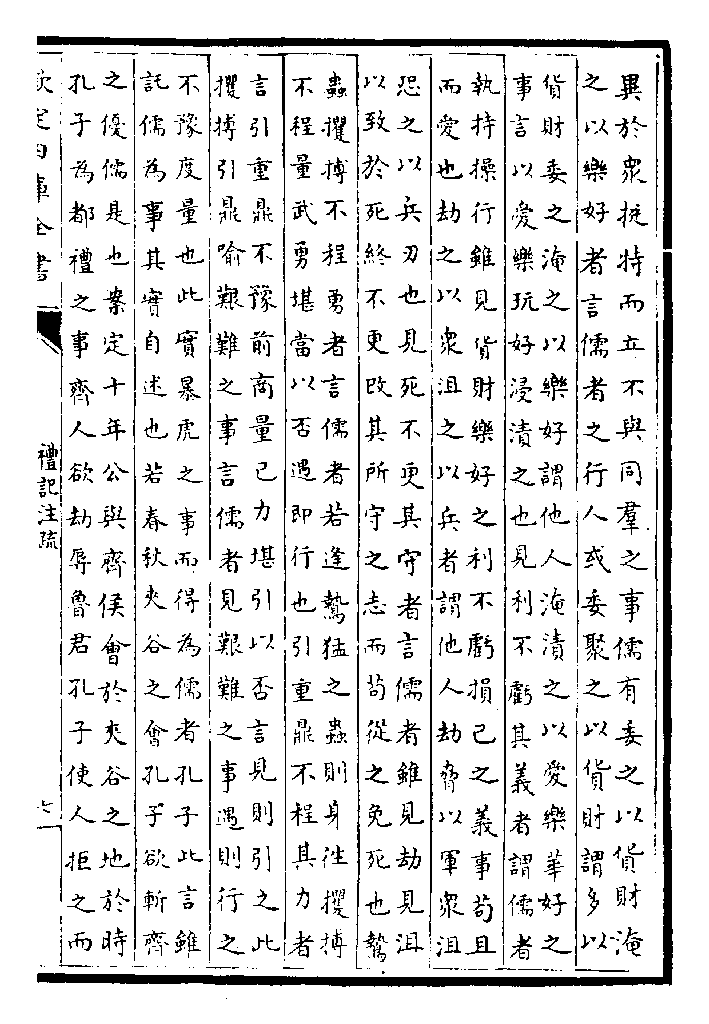 異於衆挺特而立不與同羣之事儒有委之以貨財淹
之以樂好者言儒者之行人或委聚之以貨財謂多以
貨財委之淹之以樂好謂他人淹漬之以愛樂華好之
事言以愛樂玩好浸漬之也見利不虧其義者謂儒者
執持操行雖見貨財樂好之利不虧損己之義事苟且
而愛也劫之以衆沮之以兵者謂他人劫脅以軍衆沮
恐之以兵刃也見死不更其守者言儒者雖見劫見沮
以致於死終不更改其所守之志而苟從之免死也鷙
蟲攫搏不程勇者言儒者若逢鷙猛之蟲則身徃攫搏
不程量武勇堪當以否遇即行也引重鼎不程其力者
言引重鼎不豫前商量己力堪引以否言見則引之此
攫搏引鼎喻艱難之事言儒者見艱難之事遇則行之
不豫度量也此實暴虎之事而得為儒者孔子此言雖
託儒為事其實自述也若春秋夾谷之會孔子欲斬齊
之優儒是也案定十年公與齊侯會於夾谷之地於時
孔子為都禮之事齊人欲劫辱魯君孔子使人拒之而
欽定四庫全書
禮記注疏